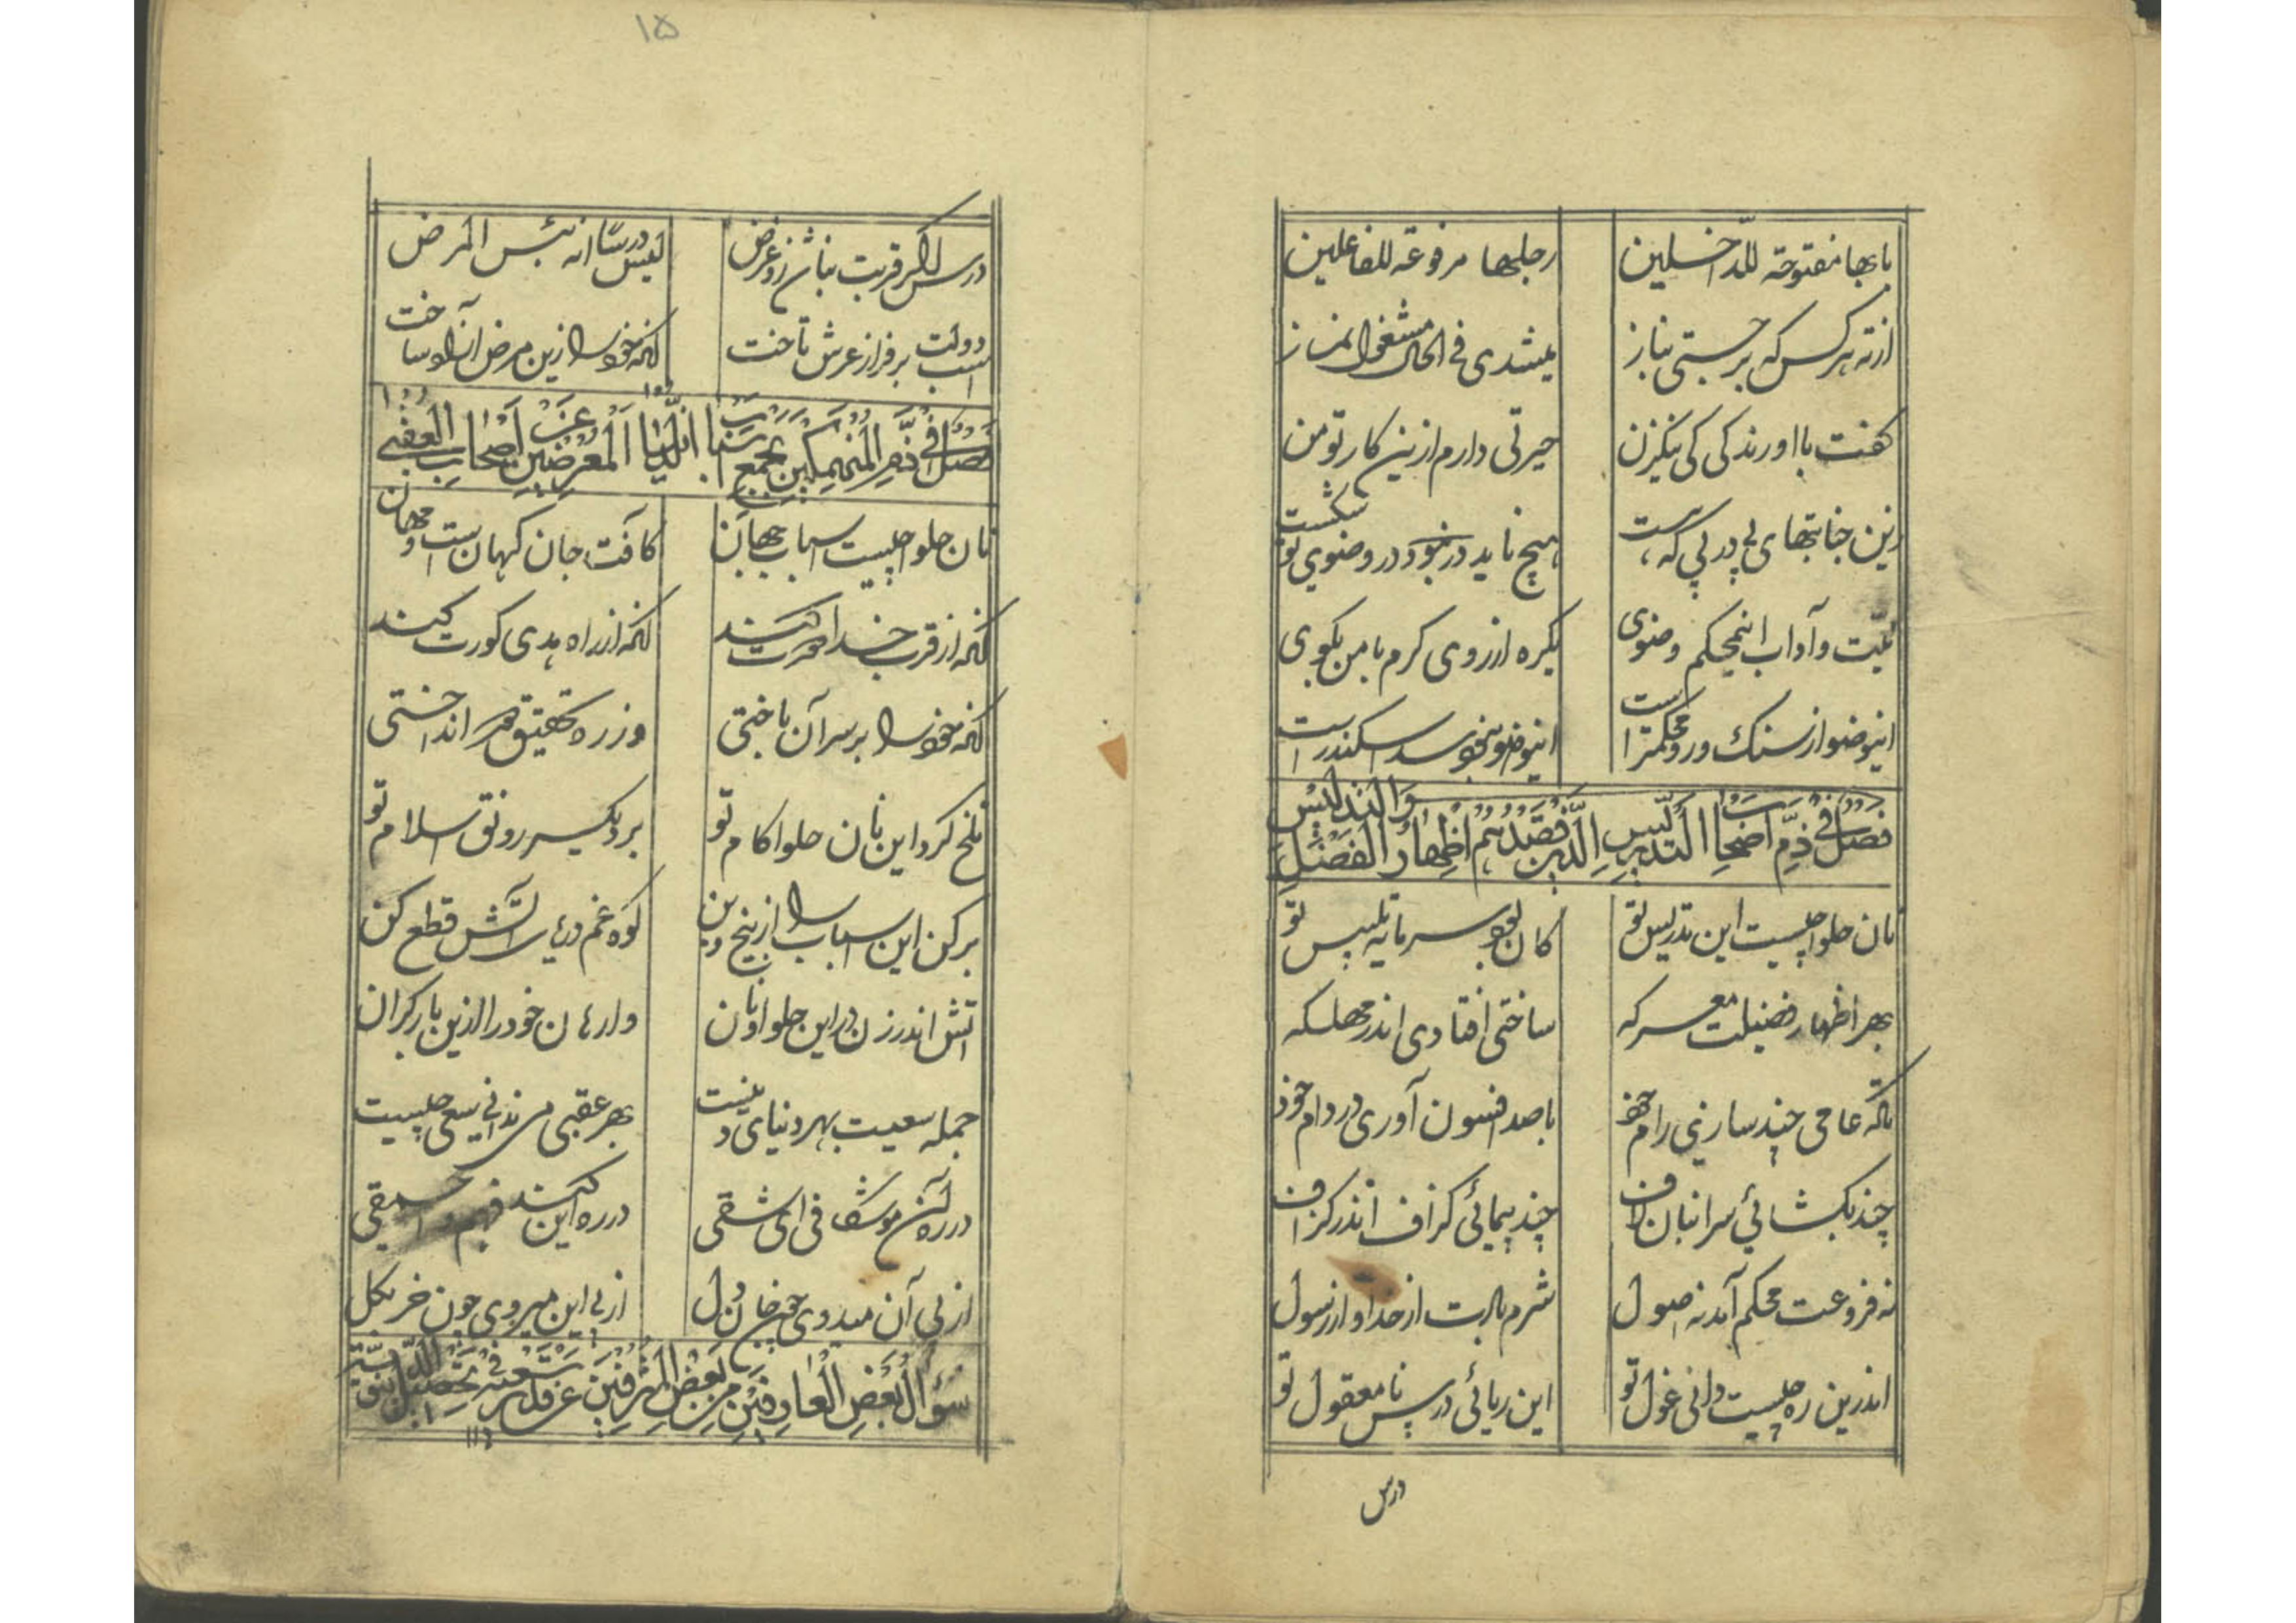 بابها مفتوحة للداخلین
رجلها مرفوعة للفاعلین
از ته هر کس که برجستی بناز
میشدی فی الحال مشغول نماز
کفت با او رندکی کی نیکزن
حیرتی دارم ازین کار تو من
زین جنابتهای پی در پی که هست
هیچ ناید در وضوی تو شکست
نیّت و آداب اینمحکم وضوی
یکره از روی کرم با من بکوی
اینوضو از سنک و رو محکمتر است
اینوضو نبود سد اسکندر است
فصل فی ذمّ اصحاب التدریس الّذین قصدهم اظهار الفضل والتدلیس
نان حلوا چیست این تدریس تو
کان بود سرمایه تلبیس تو
بهر اظهار فضیلت معرکه
ساختی افتادی اندر مهلکه
تاکه عامی چند سازی رام خود
با صد افسون آوری در دام خود
چند بکشائی سر انبان لاف
چند پیمائی کزاف اندر کزاف
نه فروعت محکم آمد نه اصول
شرم بادت از خدا و از رسول
اندرین ره چیست دانی غول تو
این ریائی درس نامعقول تو
درس
۱۵
درس اکر قربت نباشد زو غرض
لیس درسا انه بئس المرض
اسب دولت برفراز عرش تاخت
آنکه خود را زین مرض آزاد ساخت
فصل فی ذمّ المنهمکین بجمع اسباب الدنیا المعرضین عن اصحاب العقبی
نان حلوا چیست اسباب جهان
کافت جان کهان است و مهان
آنکه از قرب خدا دورت کند
آنکه از راه هدی کورت کند
آنکه خود را بر سر آن باختی
وز ره تحقیق دور انداختی
تلخ کرد این نان حلوا کام تو
برد یکسر رونق اسلام تو
برکن این اسباب را از بیخ و بن
کوه غم در پای آتش قطع کن
اتش اندر زن در این حلوا و نان
وارهان خود را ازین بار کران
جمله سعیت بهر دنیای دنیست
بهر عقبی می ندانی سعی چیست
در ره آن موشکافی ای شقی
در ره این کند فهم و احمقی
از پی آن میدوی چو جان و دل
از پی این میروی چون خر بکل
سؤال بعض العارفین من بعض المترفین عن قدر سعیه فی تحصیل الدنیویة